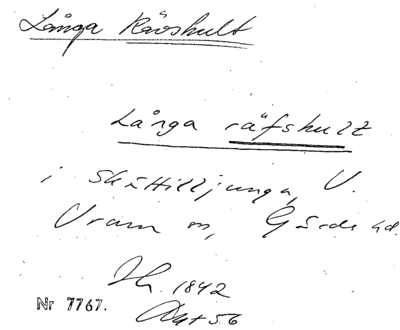 Långa Rävshult
Långa räfshult
i Skättilljunga, V.
Vram sn, Gärds hd.
1842
Akt 56
Nr 7767.